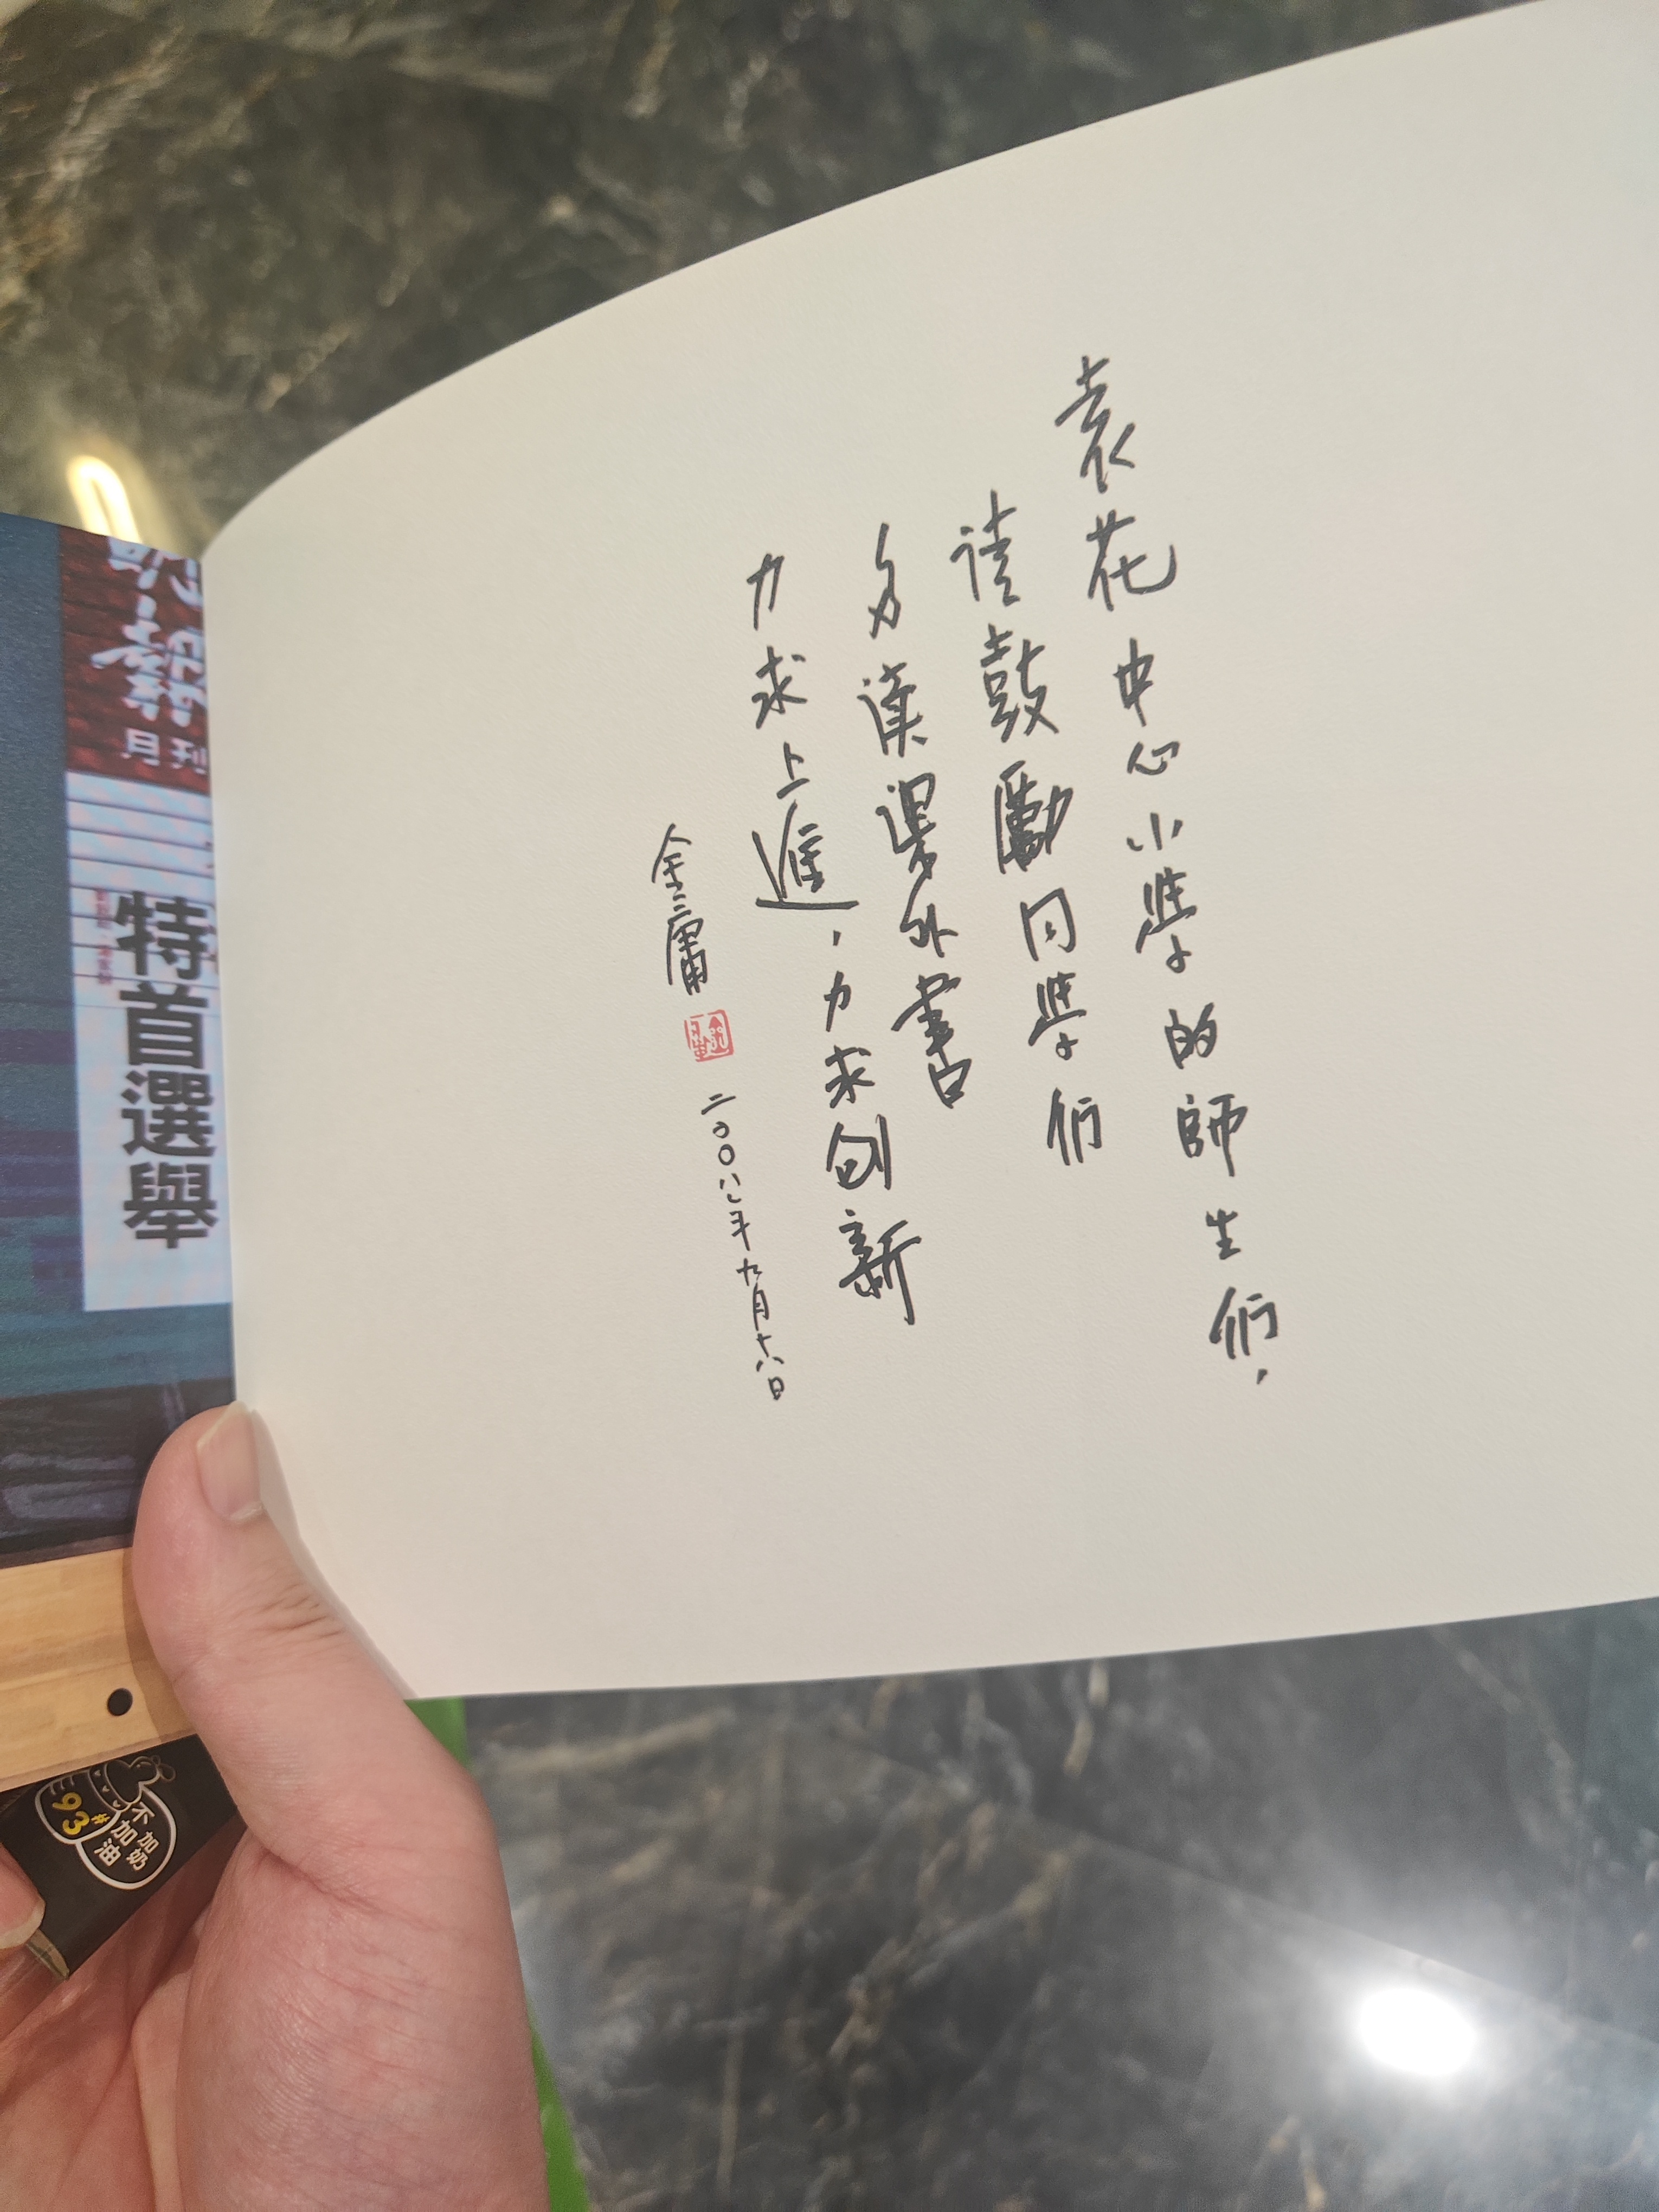 袁花中心小學的師生們，
請鼓勵同學們
多讀課外書
力求上進，力求創新
金庸
二〇〇八年九月十八日
明報
月刊
特首選舉
93#
不加油
加奶